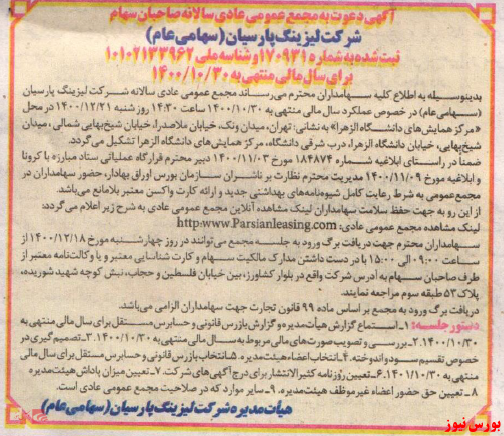 آگهی دعوت به مجمع عمومی عادی سالانه صاحبان سهام
شرکت لیزینگ پارسیان (سهامی عام)
ثبت شده به شماره ۱۷۰۹۳۱ و شناسه ملی ۱۰۱۰۲۱۳۳۹۶۲
برای سال مالی منتهی به ۱۴۰۰/۱۰/۳۰
بدینوسیله به اطلاع کلیه سهامداران محترم می‌رساند مجمع عمومی عادی سالانه شرکت لیزینگ پارسیان
(سهامی عام) در خصوص عملکرد سال مالی منتهی به ۱۴۰۰/۱۰/۳۰ ساعت ۱۴:۳۰ روز شنبه ۱۴۰۰/۱۲/۲۱ در محل
«مرکز همایش‌های دانشگاه الزهرا» به نشانی: تهران، میدان ونک، خیابان ملاصدرا، خیابان شیخ‌بهایی شمالی، میدان
شیخ‌بهایی، خیابان دانشگاه الزهرا، درب شرقی دانشگاه، مرکز همایش‌های دانشگاه الزهرا تشکیل می‌گردد.
ضمناً در راستای ابلاغیه شماره ۱۸۴۸۷۴ مورخ ۱۴۰۰/۱۱/۰۳ دبیر محترم قرارگاه عملیاتی ستاد مبارزه با کرونا
و ابلاغیه مورخ ۱۴۰۰/۱۱/۰۹ مدیریت محترم نظارت بر ناشران سازمان بورس اوراق بهادار، حضور سهامداران در
مجمع عمومی به شرط رعایت کامل شیوه‌نامه‌های بهداشتی جدید و ارائه کارت واکسن معتبر بلامانع می‌باشد.
از این رو به جهت حفظ سلامت سهامداران لینک مشاهده آنلاین مجمع عمومی عادی به شرح زیر اعلام می‌گردد:
لینک مشاهده مجمع عمومی عادی: http:www.Parsianleasing.com
سهامداران محترم جهت دریافت برگ ورود به جلسه مجمع می‌توانند در روز چهارشنبه مورخ ۱۴۰۰/۱۲/۱۸ از
ساعت ۰۹:۰۰ الی ۱۵:۰۰ با در دست داشتن مدارک مالکیت سهام و کارت شناسایی معتبر و یا وکالت‌نامه معتبر از
طرف صاحبان سهام به آدرس شرکت واقع در بلوار کشاورز، بین خیابان فلسطین و حجاب، نبش کوچه شهید شوریده،
پلاک ۵۳ طبقه سوم مراجعه نمایند.
دریافت برگ ورود به مجمع بر اساس ماده ۹۹ قانون تجارت جهت سهامداران الزامی می‌باشد.
دستور جلسه: ۱ـ استماع گزارش هیأت‌مدیره و گزارش بازرس قانونی و حسابرس مستقل برای سال مالی منتهی به
۱۴۰۰/۱۰/۳۰. ۲ـ بررسی و تصویب صورت‌های مالی مربوط به سال مالی منتهی به ۱۴۰۰/۱۰/۳۰. ۳ـ تصمیم‌گیری در
خصوص تقسیم سود و اندوخته. ۴ـ انتخاب اعضاء هیئت‌مدیره. ۵ـ انتخاب بازرس قانونی و حسابرس مستقل برای سال مالی
منتهی به ۱۴۰۱/۱۰/۳۰. ۶ـ تعیین روزنامه کثیرالانتشار برای درج آگهی‌های شرکت. ۷ـ تعیین میزان پاداش هیئت‌مدیره
۸ـ تعیین حق حضور اعضاء غیرموظف هیئت‌مدیره. ۹ـ سایر موارد که در صلاحیت مجمع عمومی عادی است.
هیأت مدیره شرکت لیزینگ پارسیان (سهامی عام)
بورس نیوز